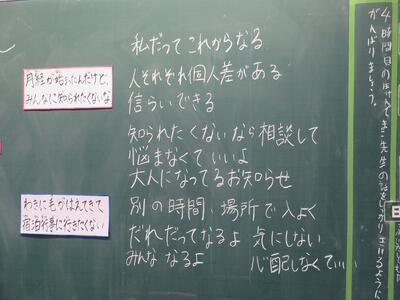 私だってこれからなる
月経が始まったんだけど、
みんなに知られたくないな
人それぞれ個人差がある
信らいできる
知られたくないなら相談して
悩まなくていいよ
大人になってるお知らせ
わきに毛がはえてきて
宿泊行事に行きたくない
別の時間、場所で入よく
だれだってなるよ 気にしない
みんななるよ 心配しなくていい
4時間目のほけんでき 先生の話をしっかりきけるように
がんばりましょう。
日